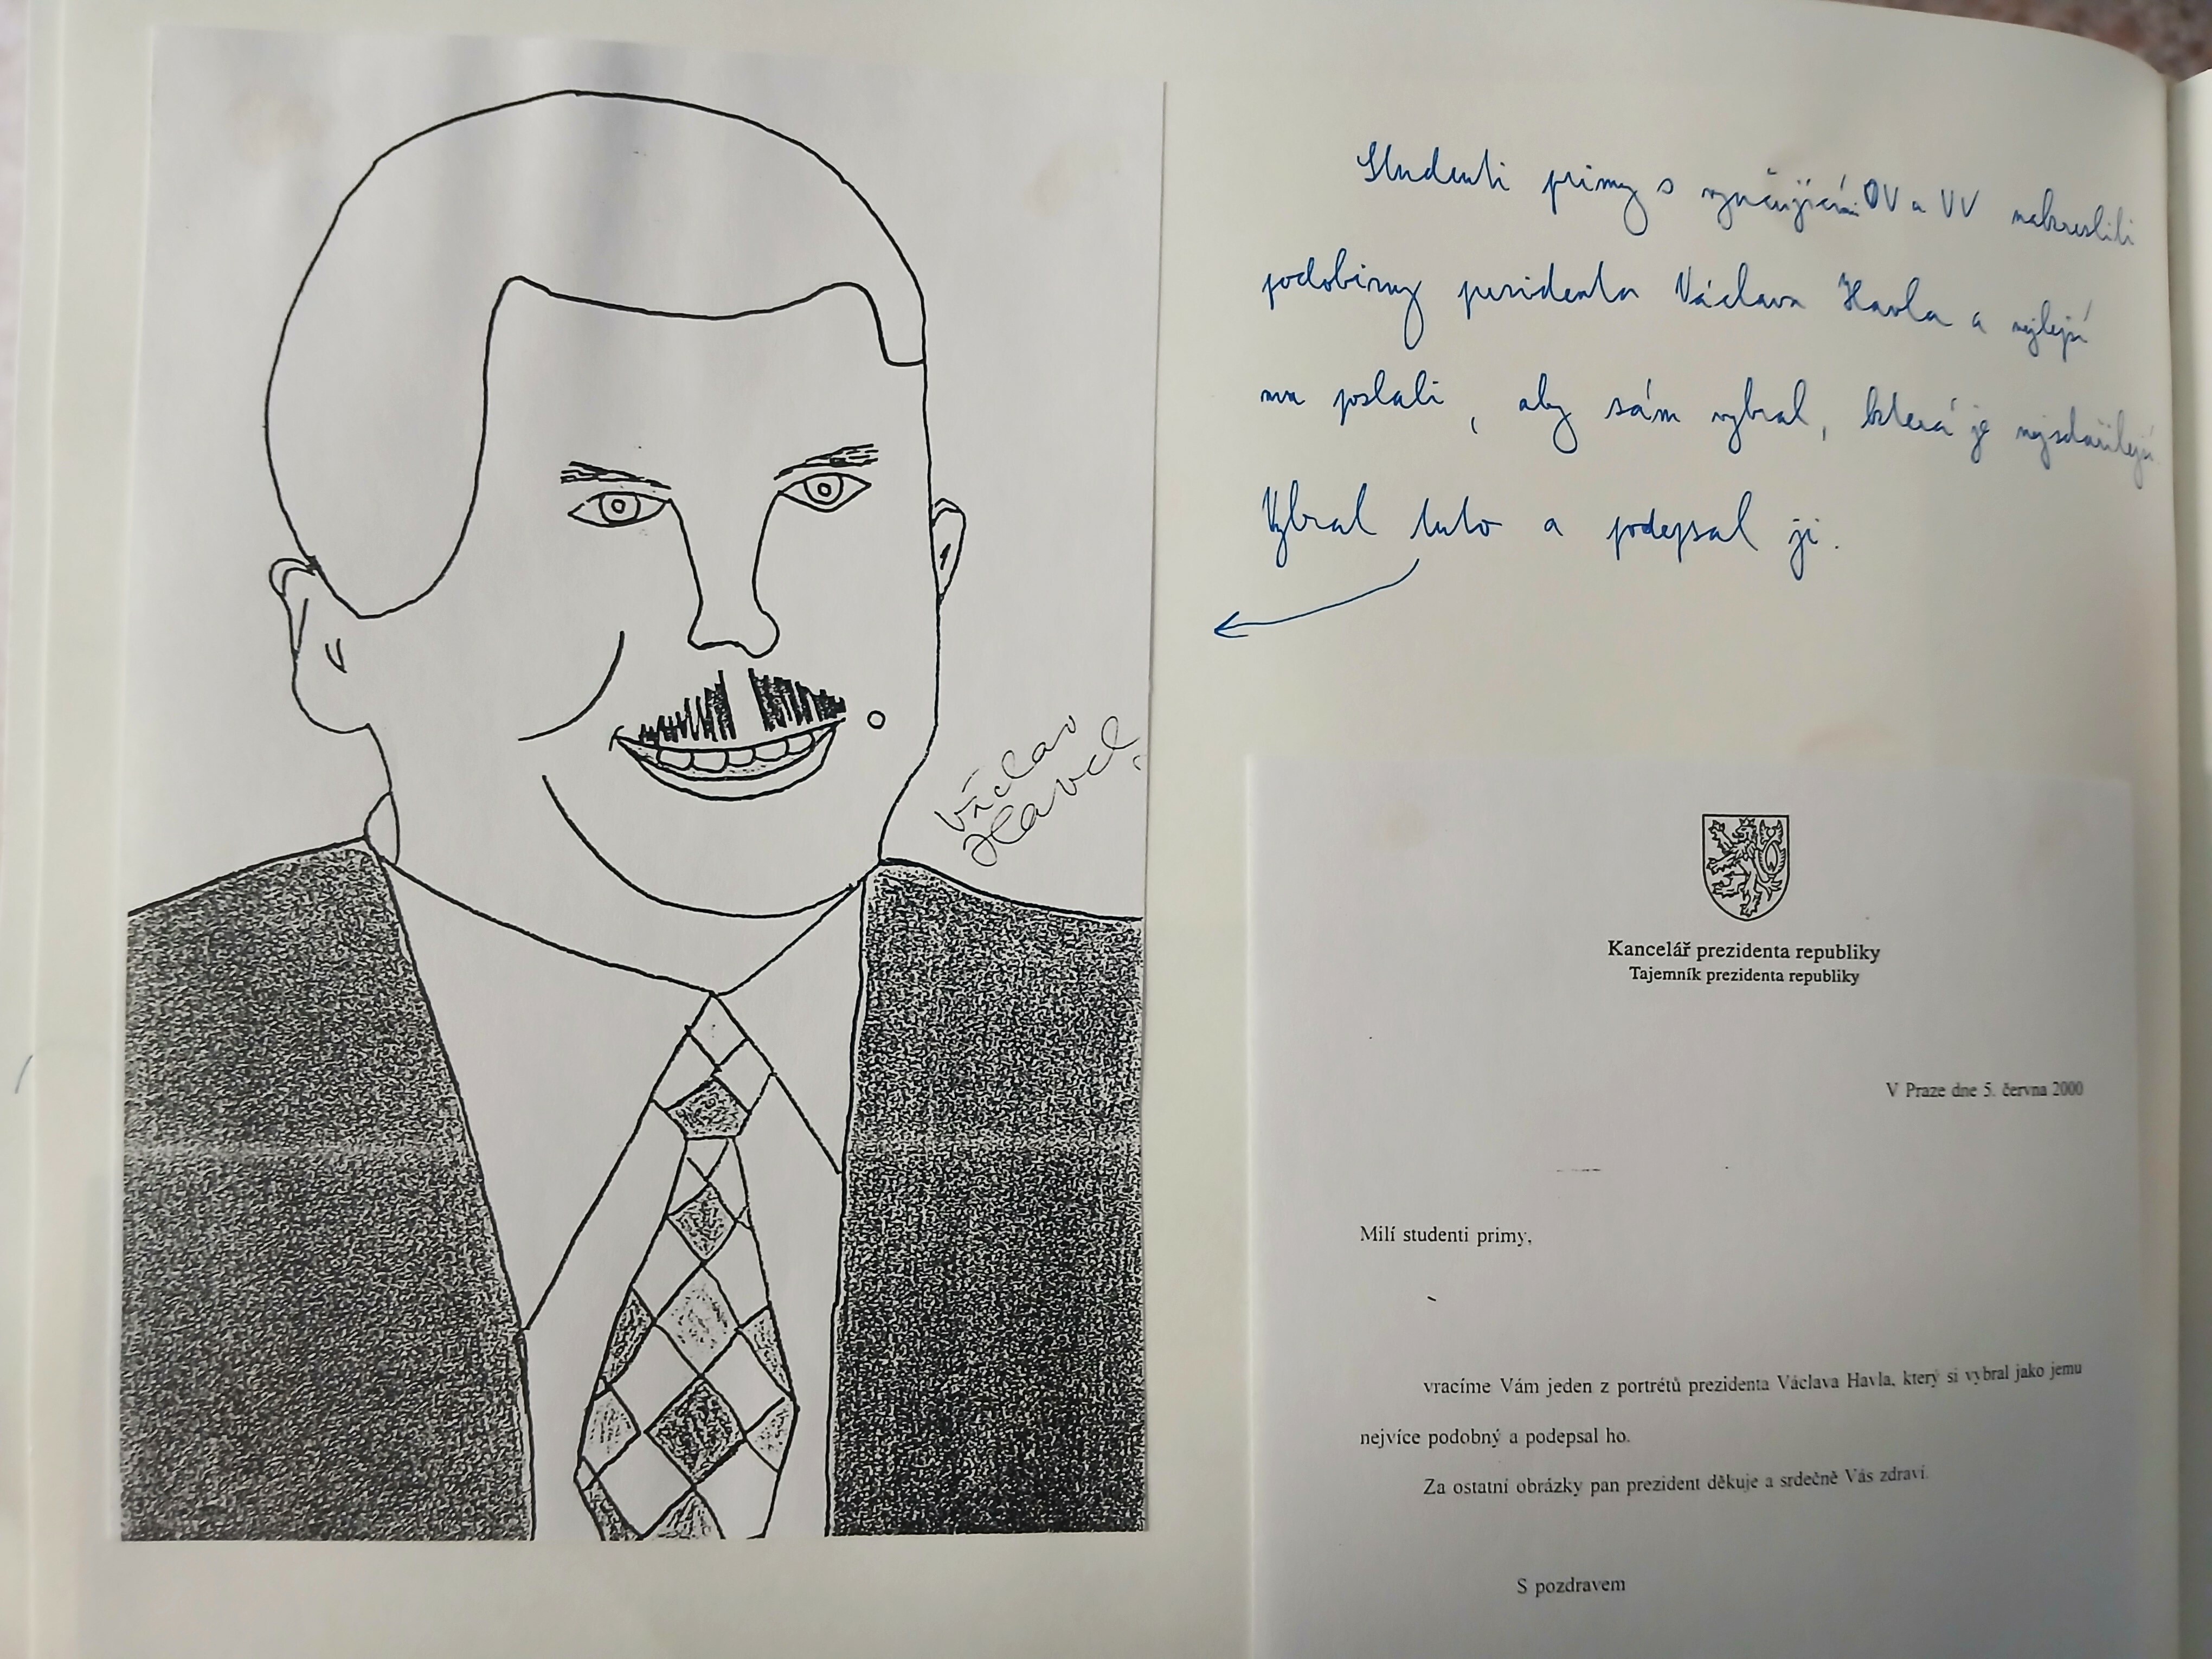 Studenti primy s vyučujícími OV a VV nakreslili
podobizny prezidenta Václava Havla a nejlepší
mu poslali, aby sám vybral, která je nejzdařilejší.
Vybral tuto a podepsal ji.
Václav
Havel
Kancelář prezidenta republiky
Tajemník prezidenta republiky
V Praze dne 5. června 2000
Milí studenti primy,
vracíme Vám jeden z portrétů prezidenta Václava Havla, který si vybral jako jemu
nejvíce podobný a podepsal ho.
Za ostatní obrázky pan prezident děkuje a srdečně Vás zdraví.
S pozdravem